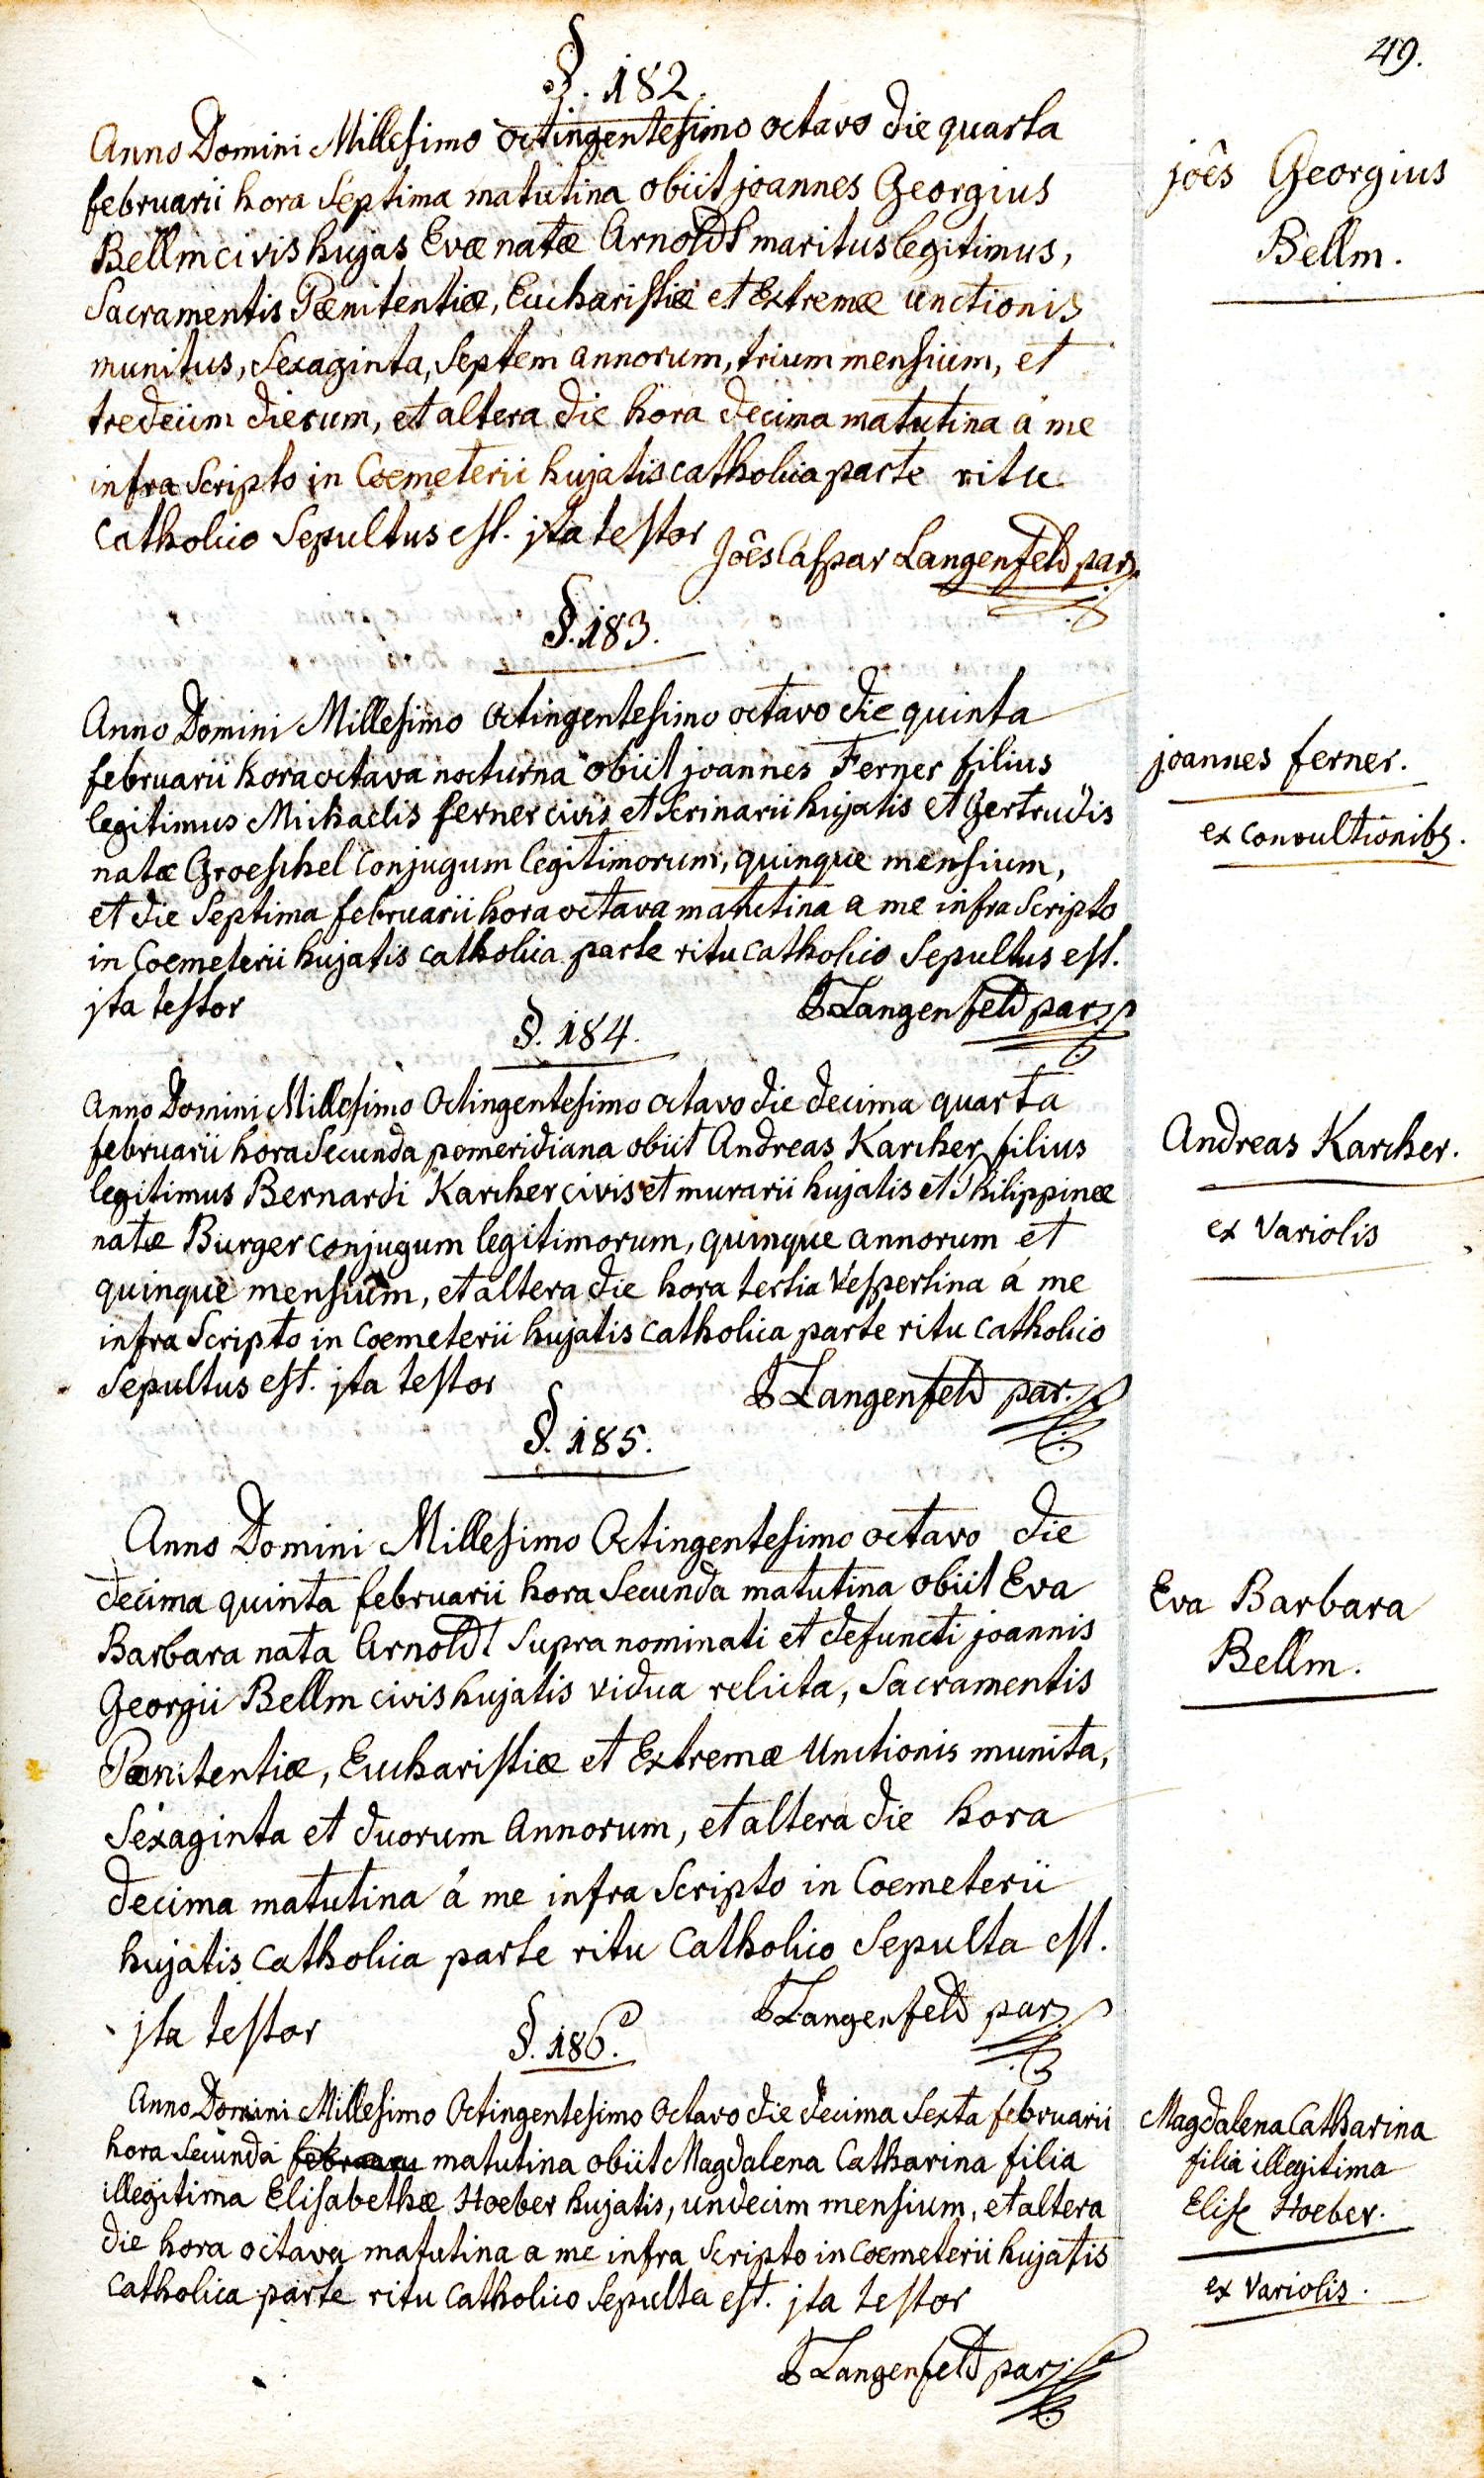 49.
§. 182.
Anno Domini Millesimo octingentesimo octavo die quarta
februarii hora septima matutina obiit joannes Georgius
Bellm civis hujas Evæ natæ Arnoldt maritus legitimus,
Sacramentis Pœnitentiæ, Eucharistiæ et Extremæ unctionis
munitus, Sexaginta, septem annorum, trium mensium, et
tredecim dierum, et altera die hora decima matutina á me
infra scripto in Coemeterii hujatis catholica parte ritu
catholico Sepultus est. jta testor
Joês Caspar Langenfeld par.
joês Georgius
Bellm.
§. 183.
Anno Domini Millesimo Octingentesimo octavo die quinta
februarii hora octava nocturna obiit joannes Ferner filius
legitimus Michaelis ferner civis et scrinarii hujatis et Gertrudis
natæ Groeschel conjugum legitimorum, quinque mensium,
et die septima februarii hora octava matutina a me infra scripto
in Coemeterii hujatis catholica parte ritu catholico Sepultus est.
jta testor
Langenfeld par.
joannes ferner.
ex convultionibs.
§. 184.
Anno Domini Millesimo Octingentesimo octavo die decima quarta
februarii hora secunda pomeridiana obiit Andreas Karcher filius
legitimus Bernardi Karcher civis et murarii hujatis et Philippinæ
natæ Burger conjugum legitimorum, quinque annorum et
quinque mensium, et altera die hora tertia Vespertina á me
infra scripto in coemeterii hujatis catholica parte ritu catholico
Sepultus est. jta testor
Langenfeld par.
Andreas Karcher.
ex Variolis
§. 185.
Anno Domini Millesimo Octingentesimo octavo die
decima quinta februarii hora secunda matutina obiit Eva
Barbara nata Arnoldt supra nominati et defuncti joannis
Georgii Bellm civis hujatis vidua relicta, Sacramentis
Pœnitentiæ, Eucharistiæ et Extremæ Unctionis munita,
Sexaginta et duorum annorum, et altera die hora
decima matutina á me infra scripto in Coemeterii
hujatis catholica parte ritu catholico Sepulta est.
jta testor
Langenfeld par.
Eva Barbara
Bellm.
§. 186.
Anno Domini Millesimo Octingentesimo Octavo die decima sexta februarii
hora secunda matutina obiit Magdalena Catharina filia
illegitima Elisabethæ Hoeber hujatis, undecim mensium, et altera
die hora octava matutina a me infra scripto in coemeterii hujatis
catholica parte ritu catholico Sepulta est. jta testor
Langenfeld par.
Magdalena Catharina
filia illegitima
Elisæ Hoeber.
ex Variolis.